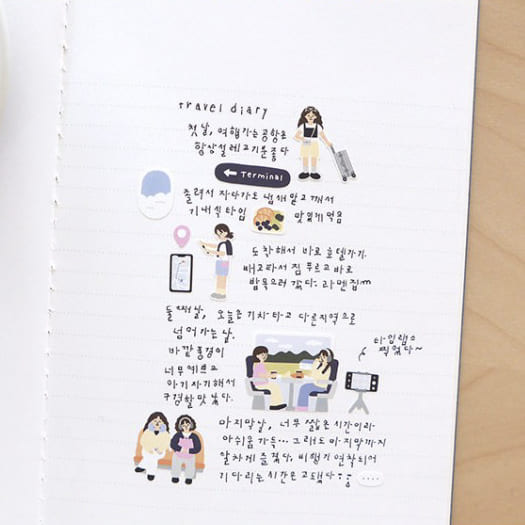 travel diary
첫날, 여행가는 공항은
항상 설레고 기분 좋다
← Terminal
졸려서 자다가도 냄새 맡고 깨서
기내식타임 맛있게 먹음
도착해서 바로 호텔가기.
배고파서 짐 푸르고 바로
밥 먹으러 갔다. 라멘집
둘째날, 오늘은 기차타고 다른지역으로
넘어가는 날.
바깥 풍경이
너무예쁘고
아기자기해서
구경할 맛 났다.
타임랩스
찍었다~
마지막날, 너무 짧은 시간이라
아쉬움 가득... 그래도 마지막까지
알차게 즐겼다. 비행기 연착되어
기다리는 시간은 고됐다